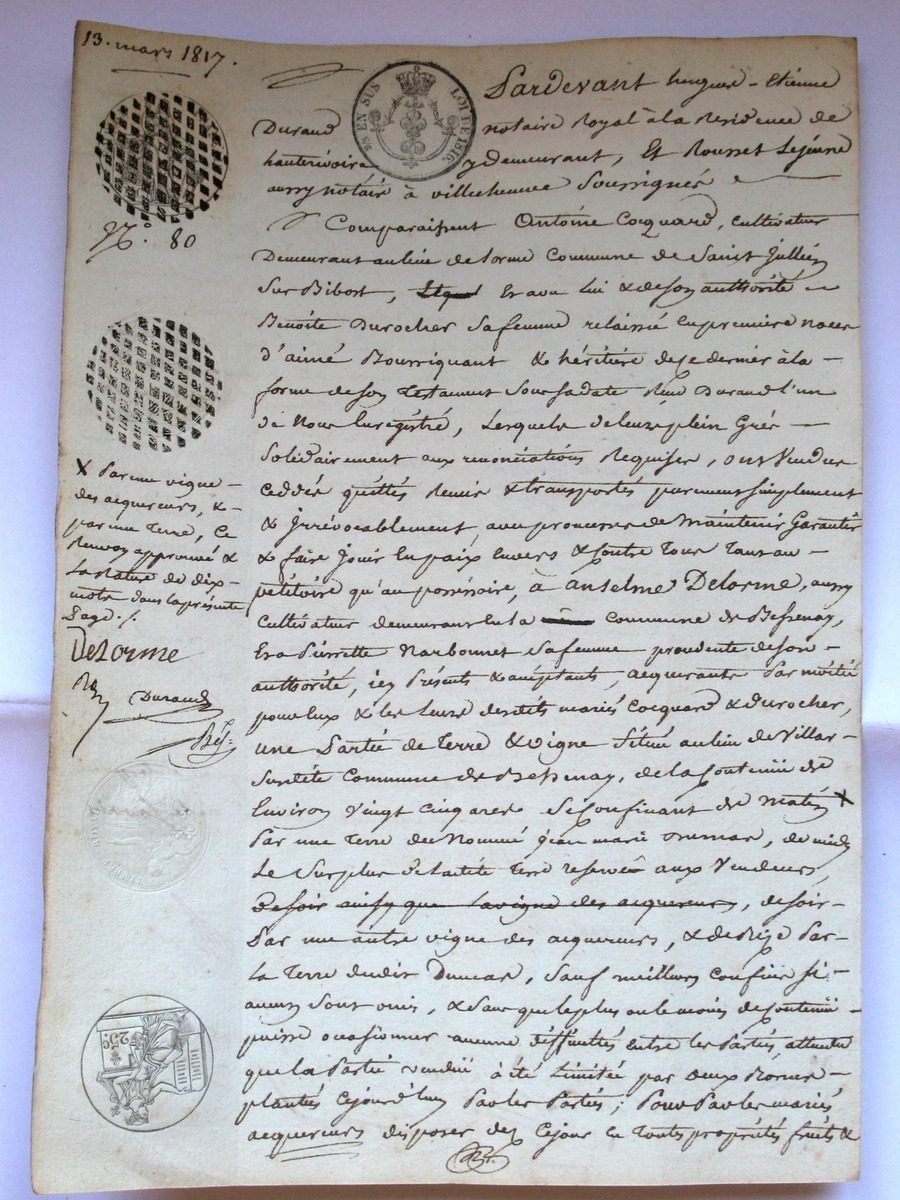 13. mars 1817.
¼ EN SUS LOI DE 1816.
Pardevant hugues - Etienne
Durand notaire Royal à la Residence de
hauterivoire y demeurant, Et Rousset Lejeune
aussy notaire à villechenève Soussignés
Comparaissent Antoine Coquard, cultivateur
Demeurant au lieu de Lorme Commune de Saint Jullien
Sur Bibost, Et avec lui & de son authorité
Benoite Durocher Sa femme relaissée en premiere noces
d'aimé Bourriquant & héritière de ce dernier à la
forme de son Testament Sous sa date Reçu Durand l'un
de Nous Enrégistré, Lesquels de leurs plein Gré
Solidairement aux renonciations Requises, ont Vendus
ceddés quittés Remis & transportés purement simplement
& Irrévocablement, avec promesse de Maintenir Garantir
& faire Jouir En paix Envers & Contre Tous Tant au
pétitoire qu'au possessoire, à Anselme Delorme, aussy
Cultivateur demeurant En la commune de Bessenay,
Et a Pierrette Narbonnet sa femme procedente de son
authorité, icy Présents & acceptants, acquerants Par moitié
pour Eux & les Leurs desdits mariés Coquard & Durocher,
une Partie de Terre & Vigne Située au lieu de Villar
Susdite Commune de Bessenay, de la Contenue de
Environ Vingt Cinq ares Se Confinant de Matin X
Par une Terre du Nommé jean marie Dumas, de midy
Le Surplus de ladite Terre reservée aux Vendeurs,
de soir ainsy que la vigne des acquereurs, de soir
Par une autre vigne des acquereurs, & de Bize Par
La Terre dudit Dumas, Sauf meilleurs confins si
aucuns Sont omis, & Sans que le plus ou le moins de Contenue
puisse occasionner aucune difficultés Entre les Parties, attendu
que la Partie vendue à été Limitée par deux Bornes
plantées Cejourd'huy Par les Parties; Pour Par les mariés
acquereurs disposer dez Cejour en Toutes propriétés fruits &
N.° 80
X Par une vigne
des acquereurs, &
par une Terre, Ce
Renvoy approuvé &
La Rature de dix
mots dans la présente
Page ./.
Delorme
Durand
25c